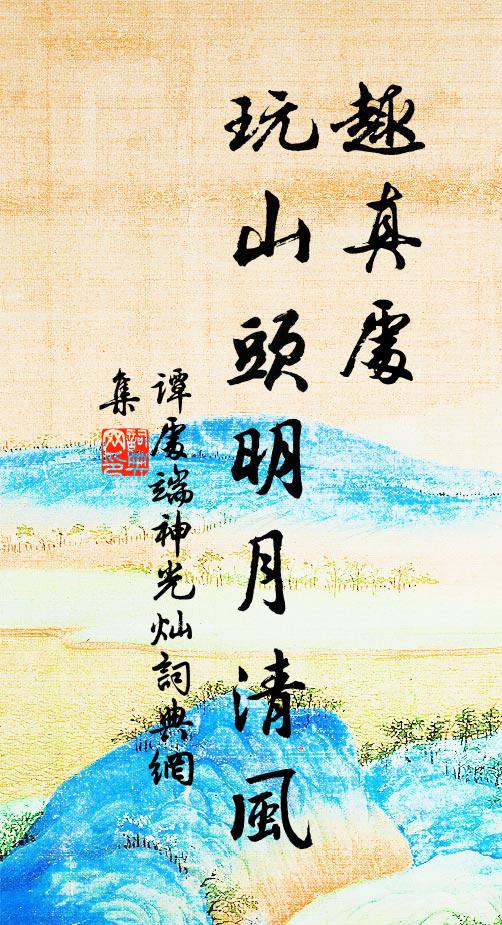 趣真處
玩山頭明月清風
譚處端神光灿詞典網
集